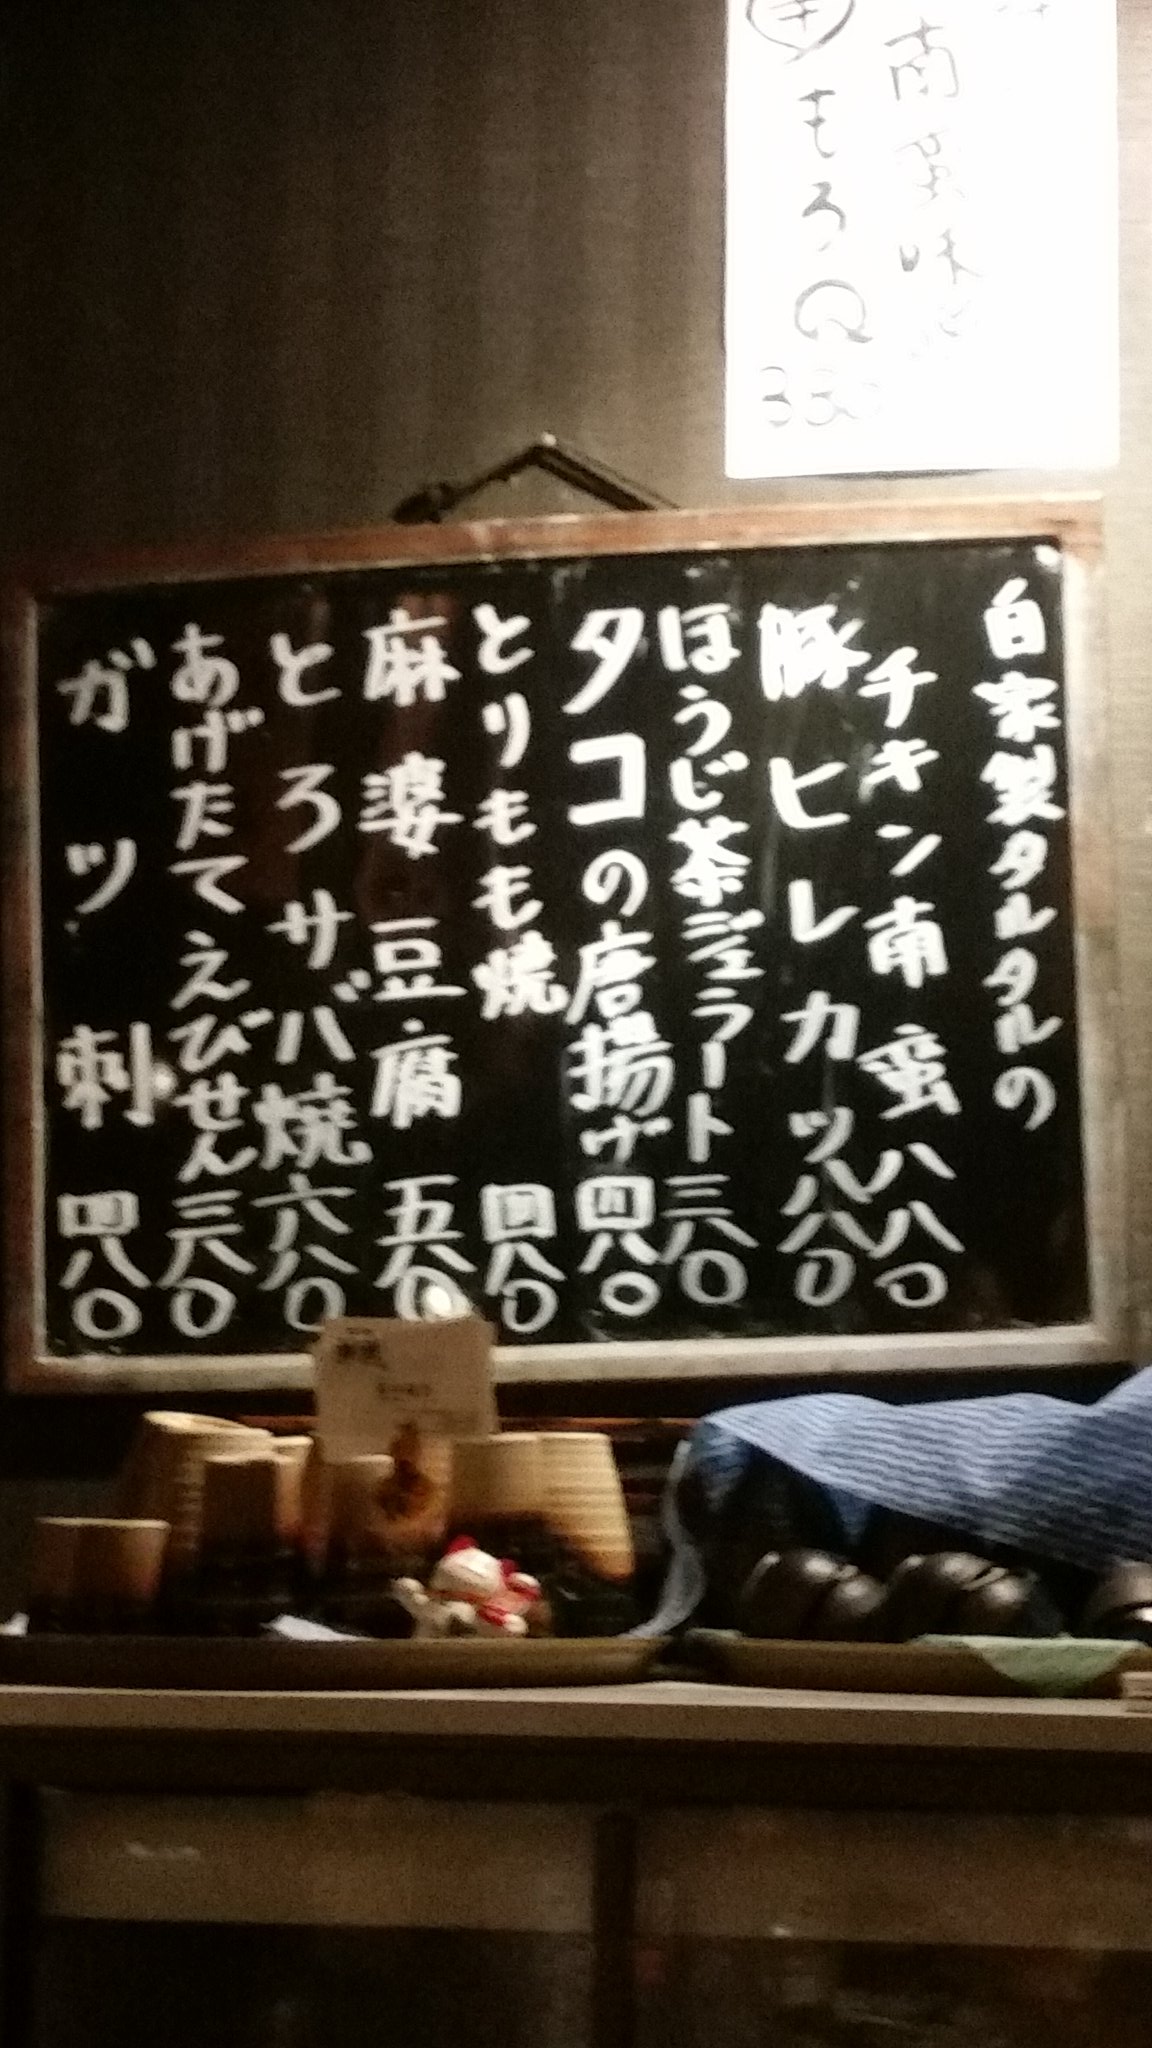 南蛮味噌
㊍もろQ
330
自家製タルタルの
チキン南蛮八八〇
豚ヒレカツ八八〇
ほうじ茶ジェラート三八〇
タコの唐揚げ四八〇
とりもも焼四八〇
麻婆豆腐五八〇
とろサバ焼六八〇
あげたてえびせん三八〇
ガツ刺四八〇